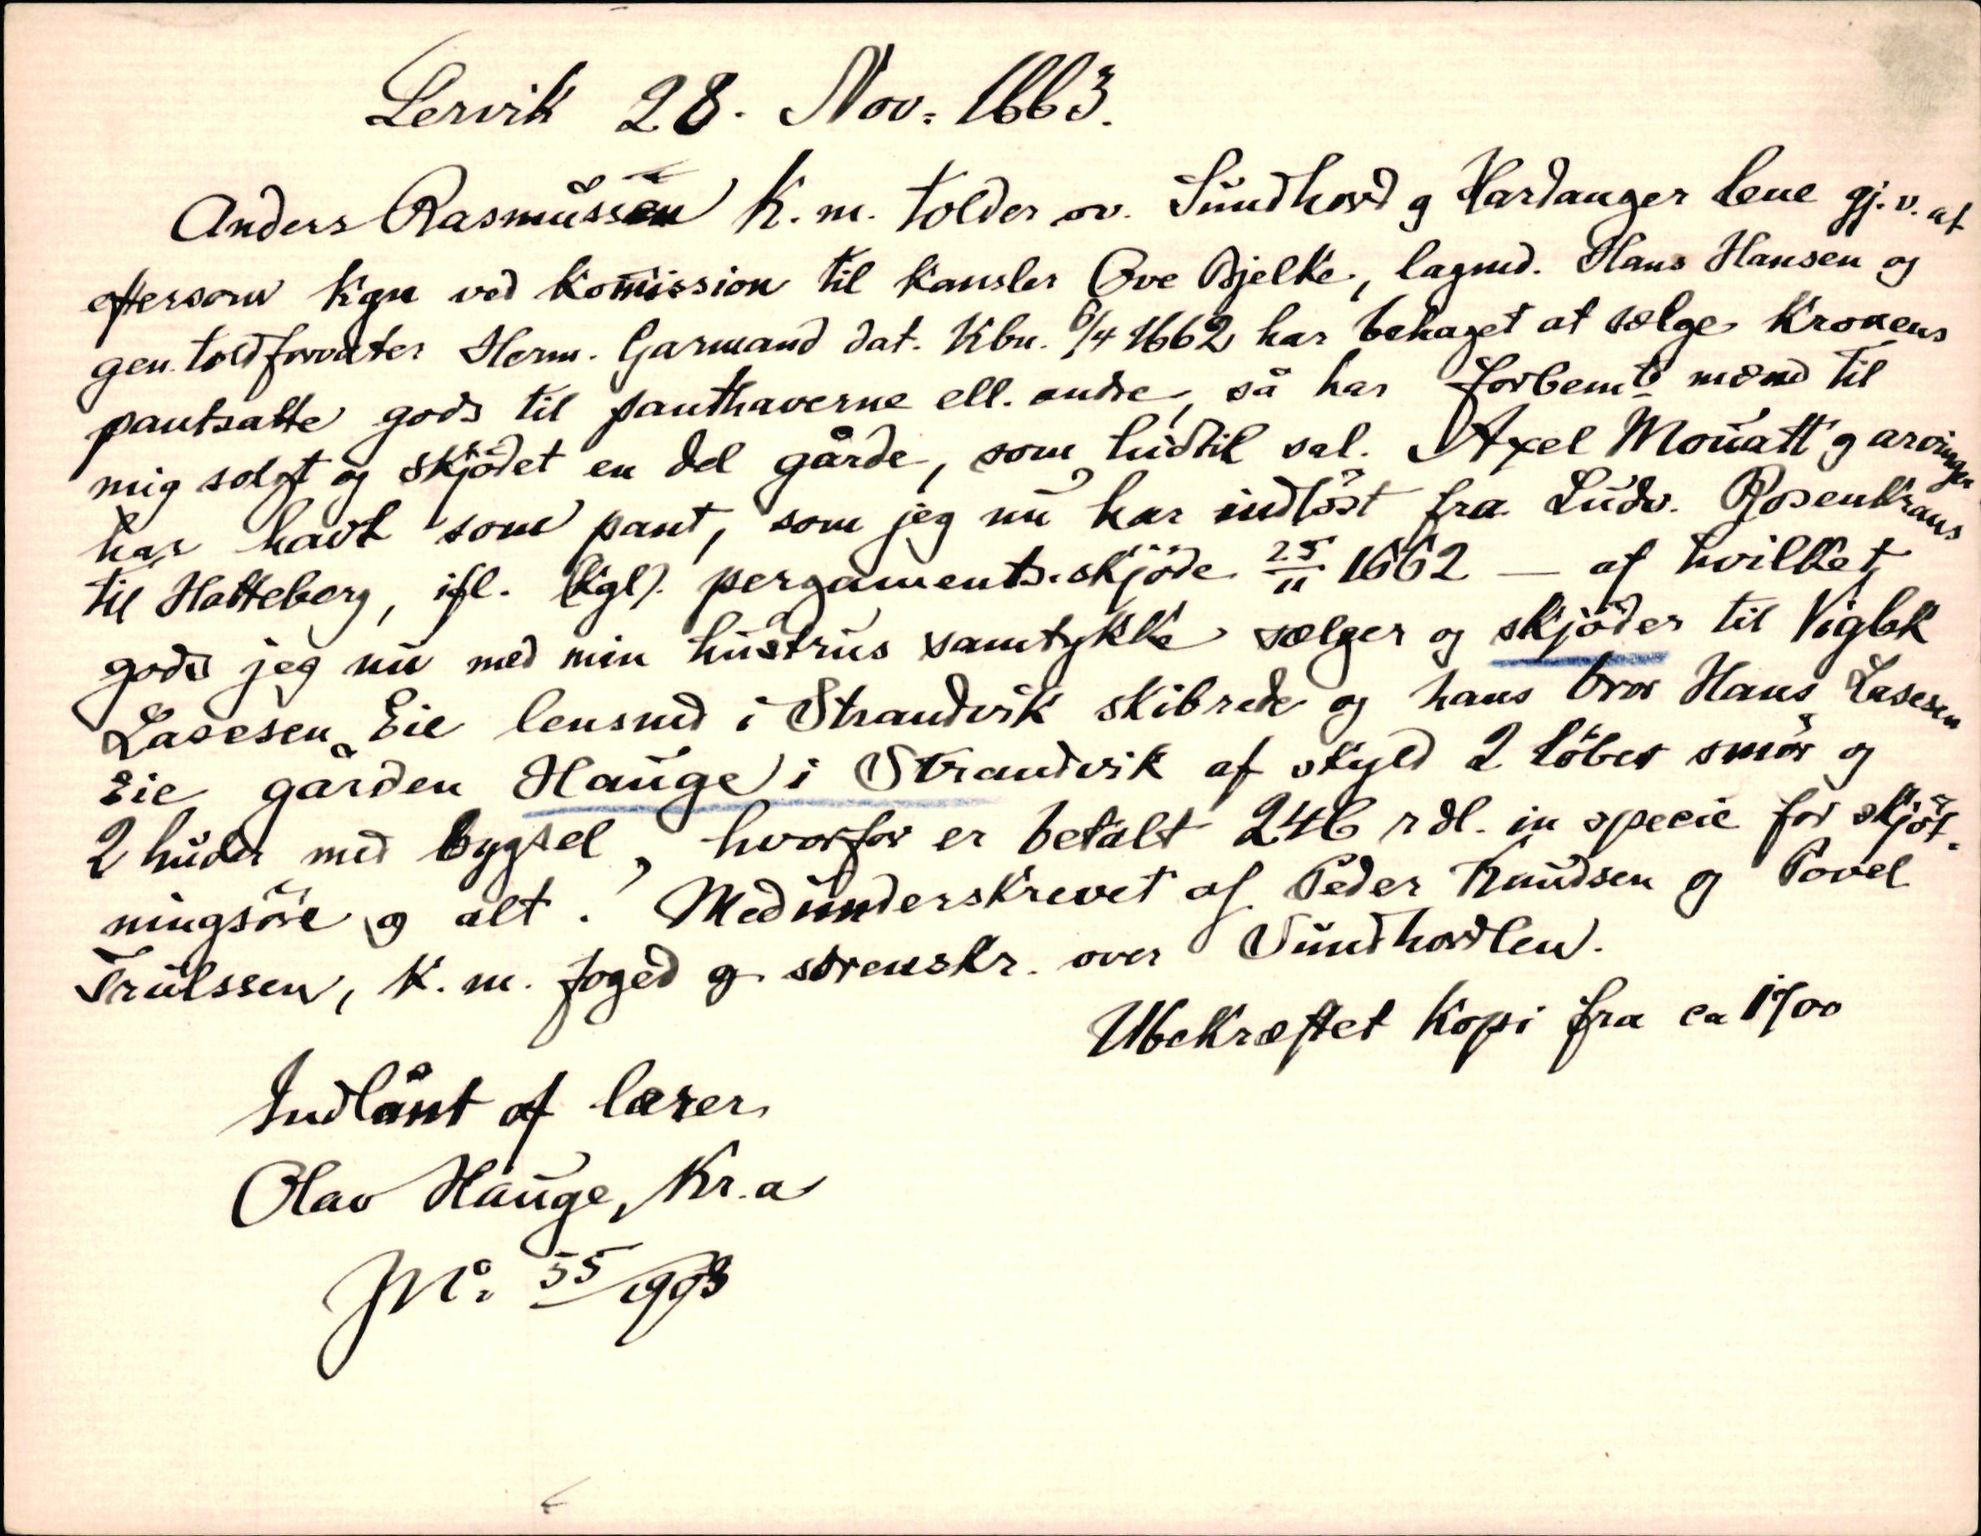 Lervik 28. Nov. 1663.
Anders Rasmussen K. m. tolder ov. Sundhord og Hardanger lene gj. v. at
eftersom kgn ved komission til kansler Ove Bjelke, lagmd. Hans Hansen og
gen. toldforvalter Herm. Garmand dat. Kbn. 6/4 1662 har behaget at sælge Kronens
pantsatte gods til panthaverne ell. andre, så har forbemte mænd til
mig solgt og skjødet en del gårde, som hidtil sal. Axel Mouatt's arvinger
har havt som pant, som jeg nu har indløst fra Ludv. Rosenkrans
til Hatteberg, ifl. (kgl). pergaments-skjøde 25/11 1662 — af hvilket
gods jeg nu med min hustrus samtykke sælger og skjøder til Viglek
Lasesen Eie lensmd i Strandvik skibrede og hans bror Hans Lasesen
Eie gården Hauge i Strandvik af skyld 2 løber smør og
2 huder med bygsel, hvorfor er betalt 246 rdl. in specie for skjøt-
ningsøre og alt. Medunderskrevet af Peder Knudsen og Povel
Trulssen, K. m. foged og sorenskr. over Sundhordlen.
Ubekræftet kopi fra ca 1700
Indlånt af lærer
Olav Hauge, Kr.a
JNo. 55/1903